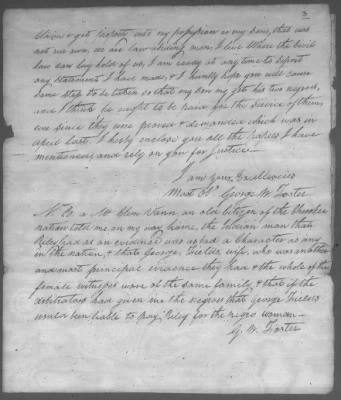 3
Union & get in possession or my sons, that was
not run over, we are law abiding men, I live where the Civil
law can lay hold of us, I am ready at any time to defend
any statements I have made, & I humbly hope you will cause
some step to be taken so that my son may get his two negroes,
and I think he ought to be paid for the service of them
ever since they were proved & demanded which was in
April last. I hereby enclose you all the Papers I have
mentioned, and rely on you for Justice—
I am your Excellencies
Most Obt George W. Foster
N.B. a Mr Clem Vann an old Citizen of the Cherokee
nation told me on my way home, the Indian man that
Riley had as an evidence was as bad a character as any
in the nation, & that George Fields wife, who was another
and most principal evidence they had & the whole of the
female witnesses were of the same family, & that if the
arbitrators had given me the negroes that George Fields
would been liable to pay Riley for the negro woman—
G. W. Foster